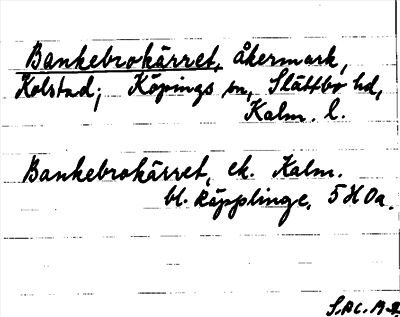 Bankebrokärret, åkermark,
Kolstad; Köpings sn, Slättbo hd,
Kalm. l.
Bankebrokärret, ek. Kalm.
bl. Räpplinge, 5 H 0a.